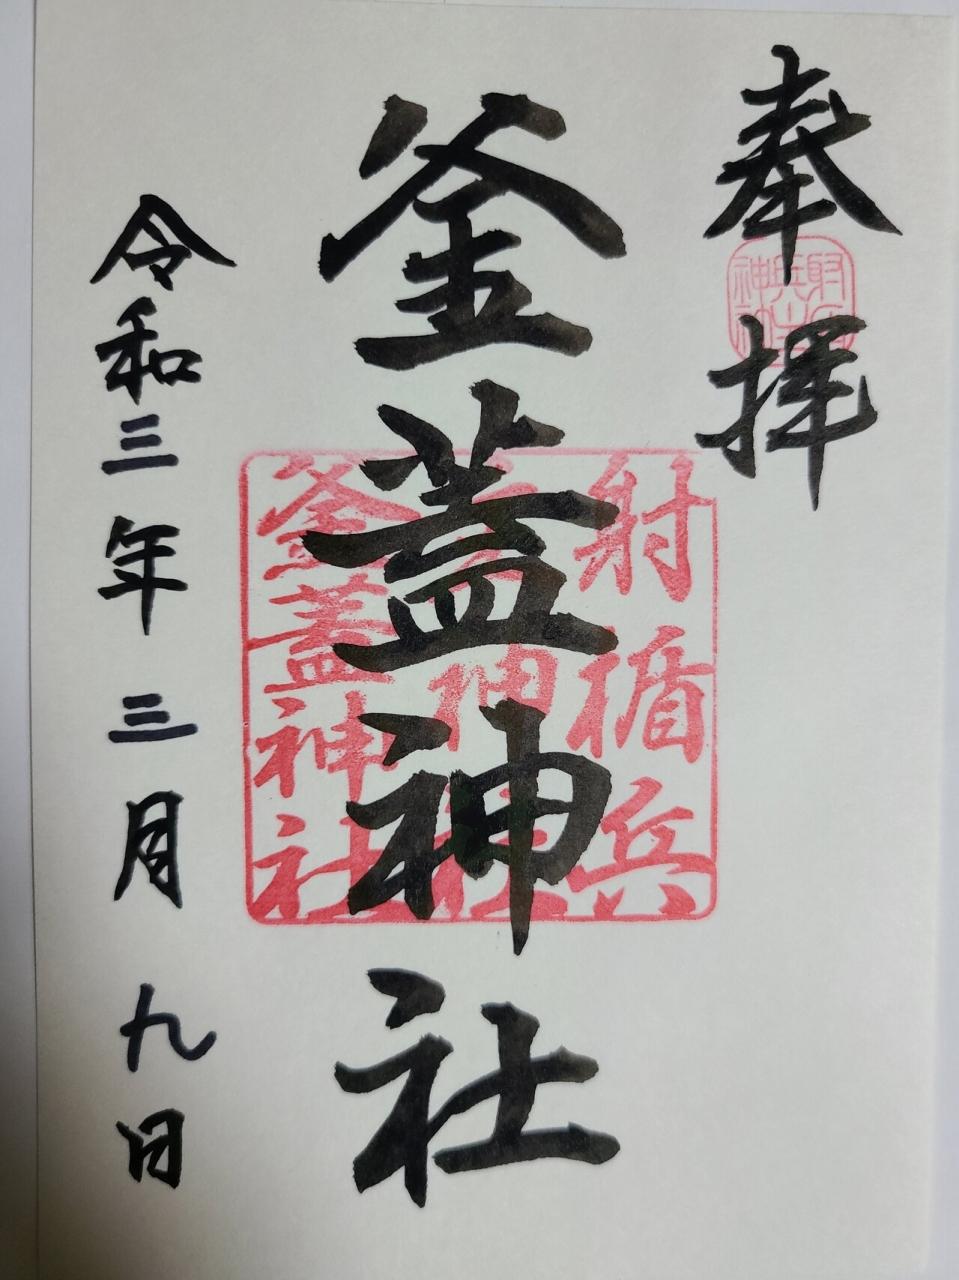 奉拝
釜蓋神社
射楯兵
神社
釜蓋神社
令和三年三月九日